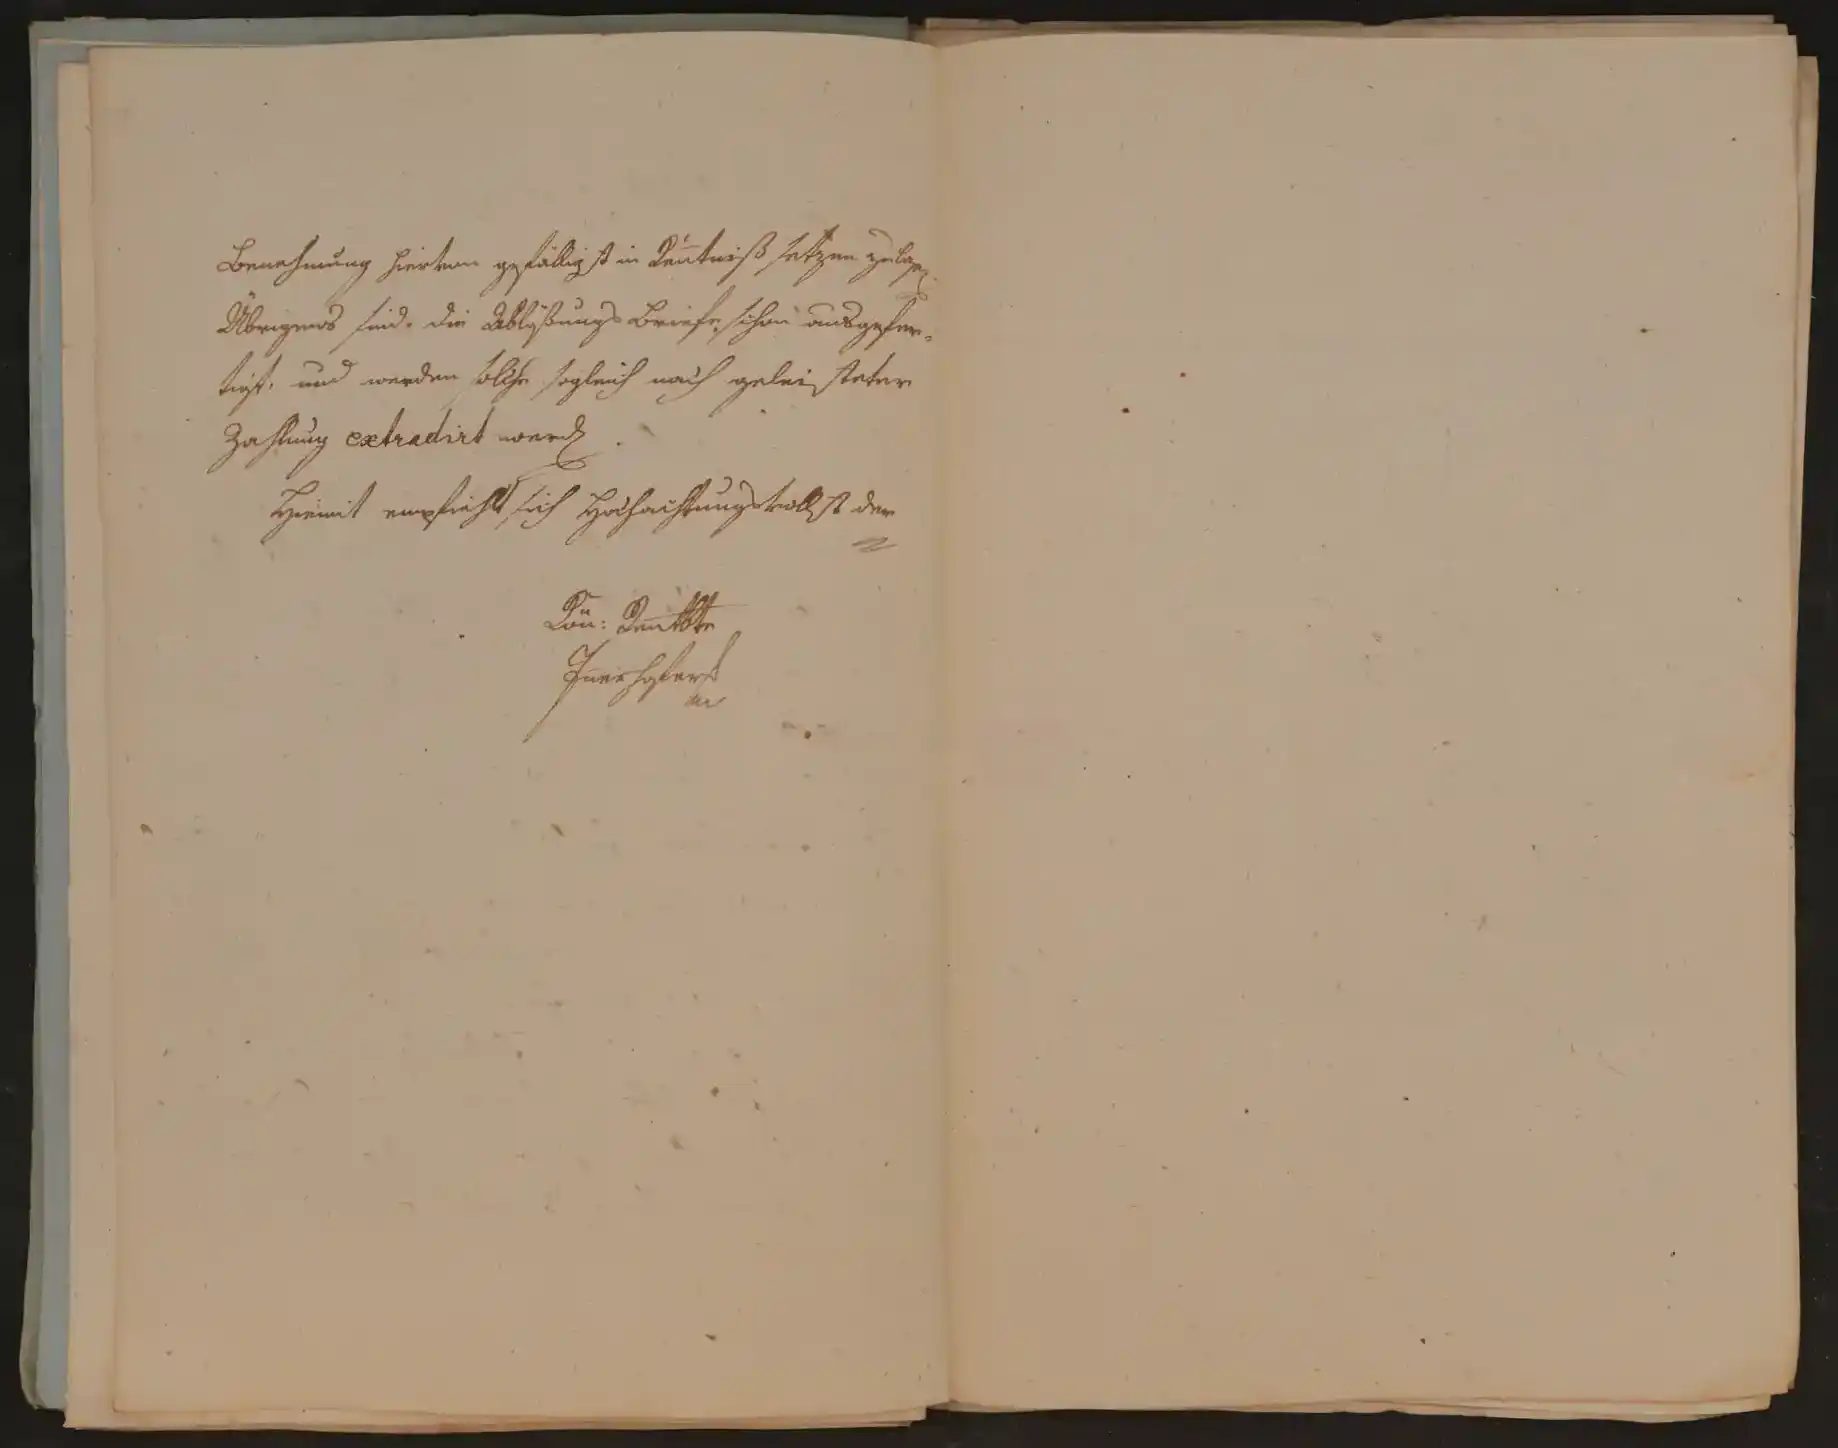 Benehmung hievon gefälligst in Kenntniß setzen zu laßen.
Übrigens sind die Ablößungs Briefe schon ausgefer-
tigt, und werden solche sogleich nach geleisteter
Zahlung extradirt werden.
Hiemit empfiehlt sich Hochachtungsvollst der
Kön: Rentbte